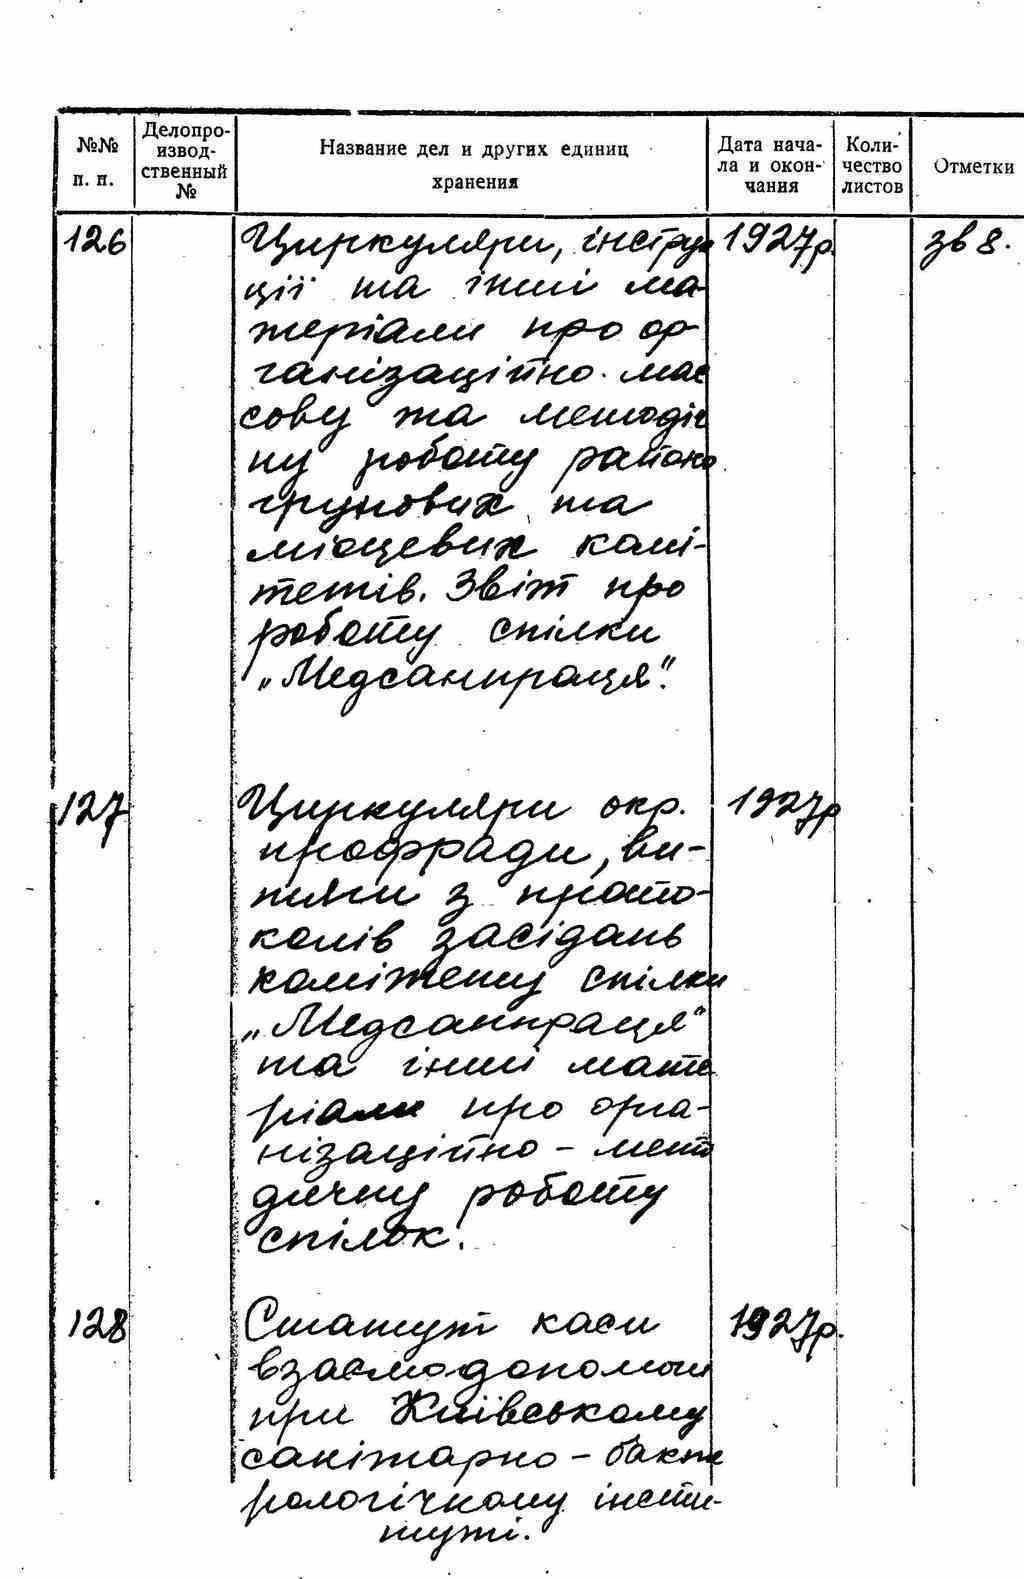 №№ п. п.
Делопро-
извод-
ственный
№
Название дел и других единиц
хранения
Дата нача-
ла и окон-
чания
Коли-
чество
листов
Отметки
126 Циркуляри, інструк 1927р. зв 8.
ції та інші ма-
теріали про ор-
ганізаційно-мас
сову та методіч
ну роботу районо
групових та
місцевих комі-
тетів. Звіт про
роботу спілки
„Медсанпраця".
127 Циркуляри окр. 1927р
профради, ви-
тяги з прото-
колів засідань
комітету спілки
„Медсанпраця"
та інші мате
ріали про орга-
нізаційно-мето
дичну роботу
спілок.
128 Статут каси 1927р.
взаємодопомоги
при Київському
санітарно-бакте
рологічному інсти-
туті.